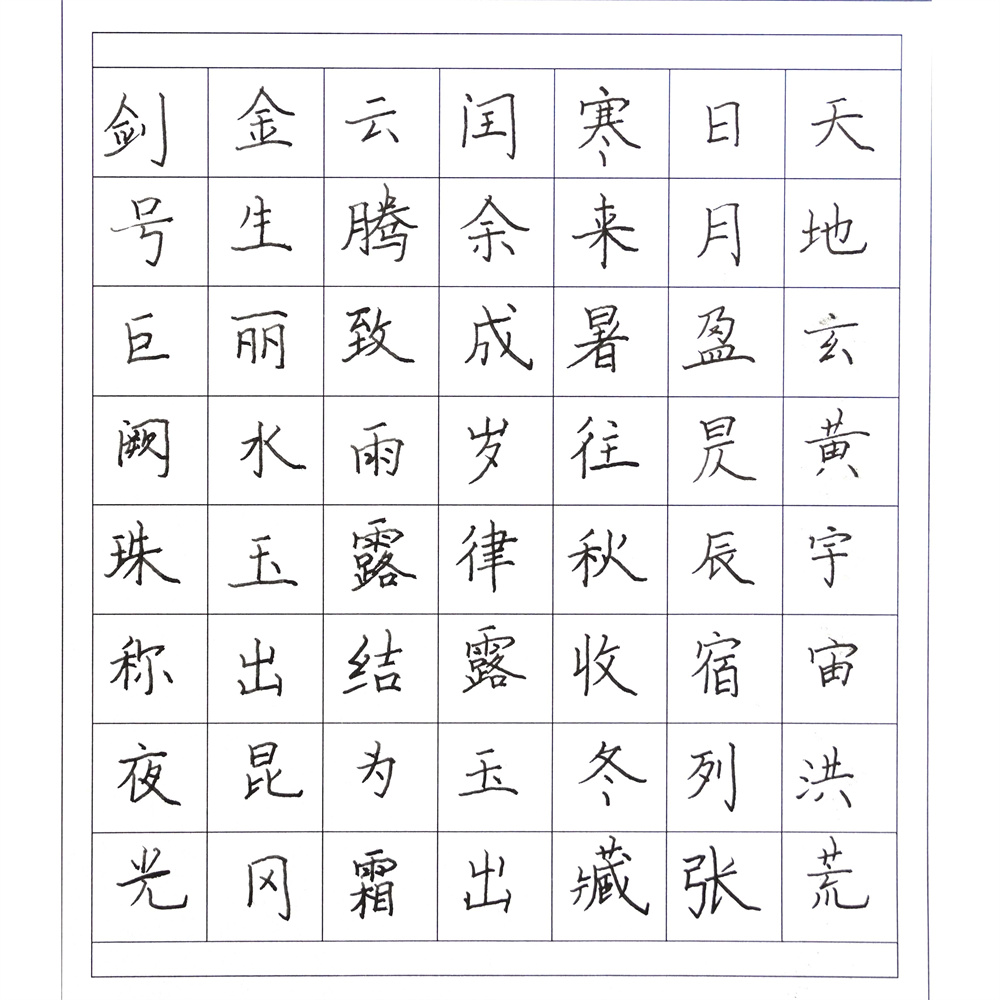 天地玄黄宇宙洪荒
日月盈昃辰宿列张
寒来暑往秋收冬藏
闰余成岁律露玉出
云腾致雨露结为霜
金生丽水玉出昆冈
剑号巨阙珠称夜光